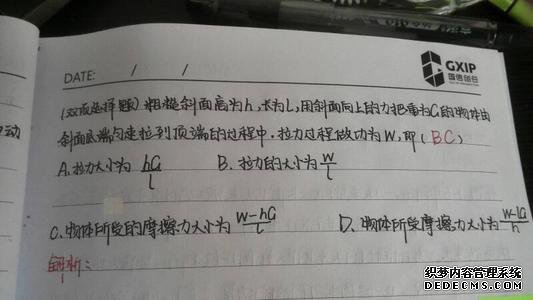 GXIP
国信创芯
DATE: / /
(双项选择题)粗糙斜面高为h,长为L,用斜面向上的力把重为G的物体由
斜面底端匀速拉到顶端的过程中,拉力过程做功为W,即(BC)
A.拉力大小为 hG/L B.拉力的大小为 W/L
C.物体所受的摩擦力大小为 W-hG/L D.物体所受摩擦力大小为 W-LG/h
解析:
织梦内容管理系统
DEDECMS.COM